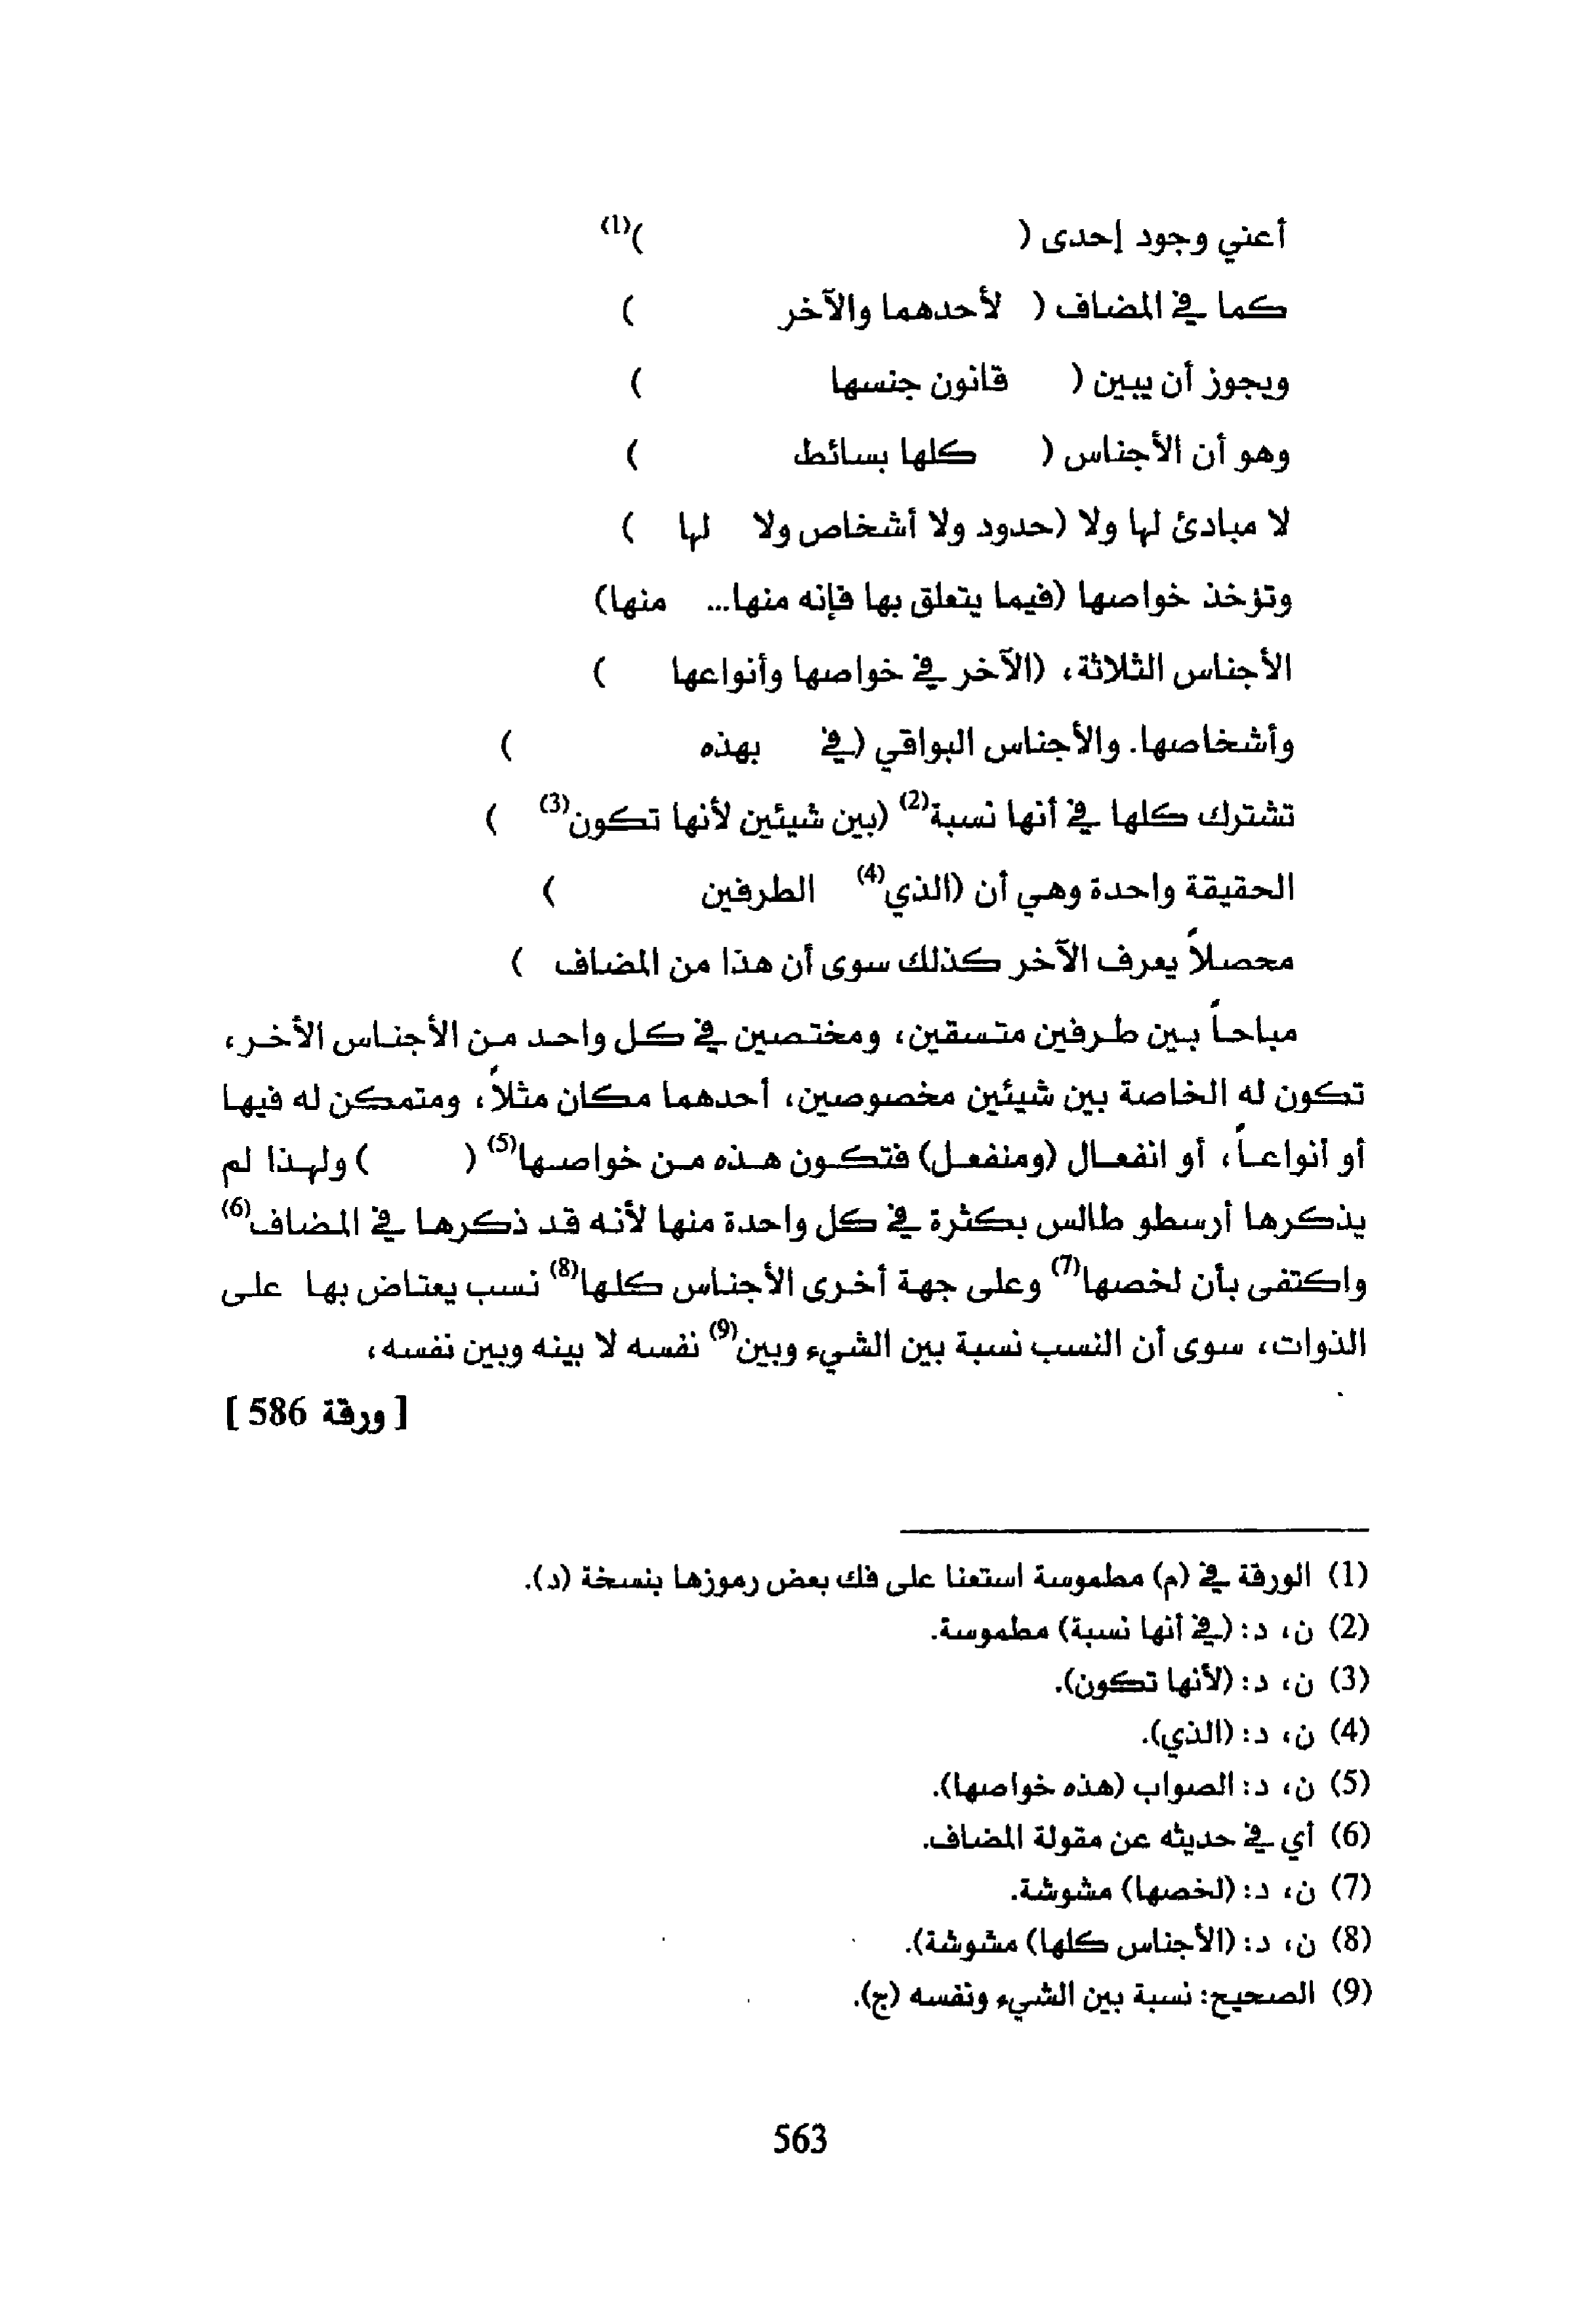 أعني وجود إحدى (                    )(1)
كما في المضاف (   لأحدهما والآخر          )
ويجوز أن يبين (     قانون جنسها            )
وهو أن الأجناس (     كلها بسائط          )
لا مبادئ لها ولا (حدود ولا أشخاص ولا    لها    )
وتؤخذ خواصها (فيما يتعلق بها فإنه منها...   منها)
الأجناس الثلاثة، (الآخر في خواصها وأنواعها      )
وأشخاصها. والأجناس البواقي (في     بهذه               )
تشترك كلها في أنها نسبة(2) (بين شيئين لأنها تكون(3)    )
الحقيقة واحدة وهي أن (الذي(4)    الطرفين           )
محصلاً يعرف الآخر كذلك سوى أن هذا من المضاف   )
مباحاً بين طرفين متسقين، ومختصين في كل واحد من الأجناس الأخر،
تكون له الخاصة بين شيئين مخصوصين، أحدهما مكان مثلاً، ومتمكن له فيها
أو أنواعاً، أو انفعال (ومنفعل) فتكون هذه من خواصها(5) (        ) ولهذا لم
يذكرها أرسطو طالس بكثرة في كل واحدة منها لأنه قد ذكرها في المضاف(6)
واكتفى بأن لخصها(7) وعلى جهة أخرى الأجناس كلها(8) نسب يعتاض بها على
الذوات، سوى أن النسب نسبة بين الشيء وبين(9) نفسه لا بينه وبين نفسه،
[ ورقة 586 ]
(1) الورقة في (م) مطموسة استعنا على فك بعض رموزها بنسخة (د).
(2) ن، د: (في أنها نسبة) مطموسة.
(3) ن، د: (لأنها تكون).
(4) ن، د: (الذي).
(5) ن، د: الصواب (هذه خواصها).
(6) أي في حديثه عن مقولة المضاف.
(7) ن، د: (لخصها) مشوشة.
(8) ن، د: (الأجناس كلها) مشوشة).
(9) الصحيح: نسبة بين الشيء ونفسه (ج).
563